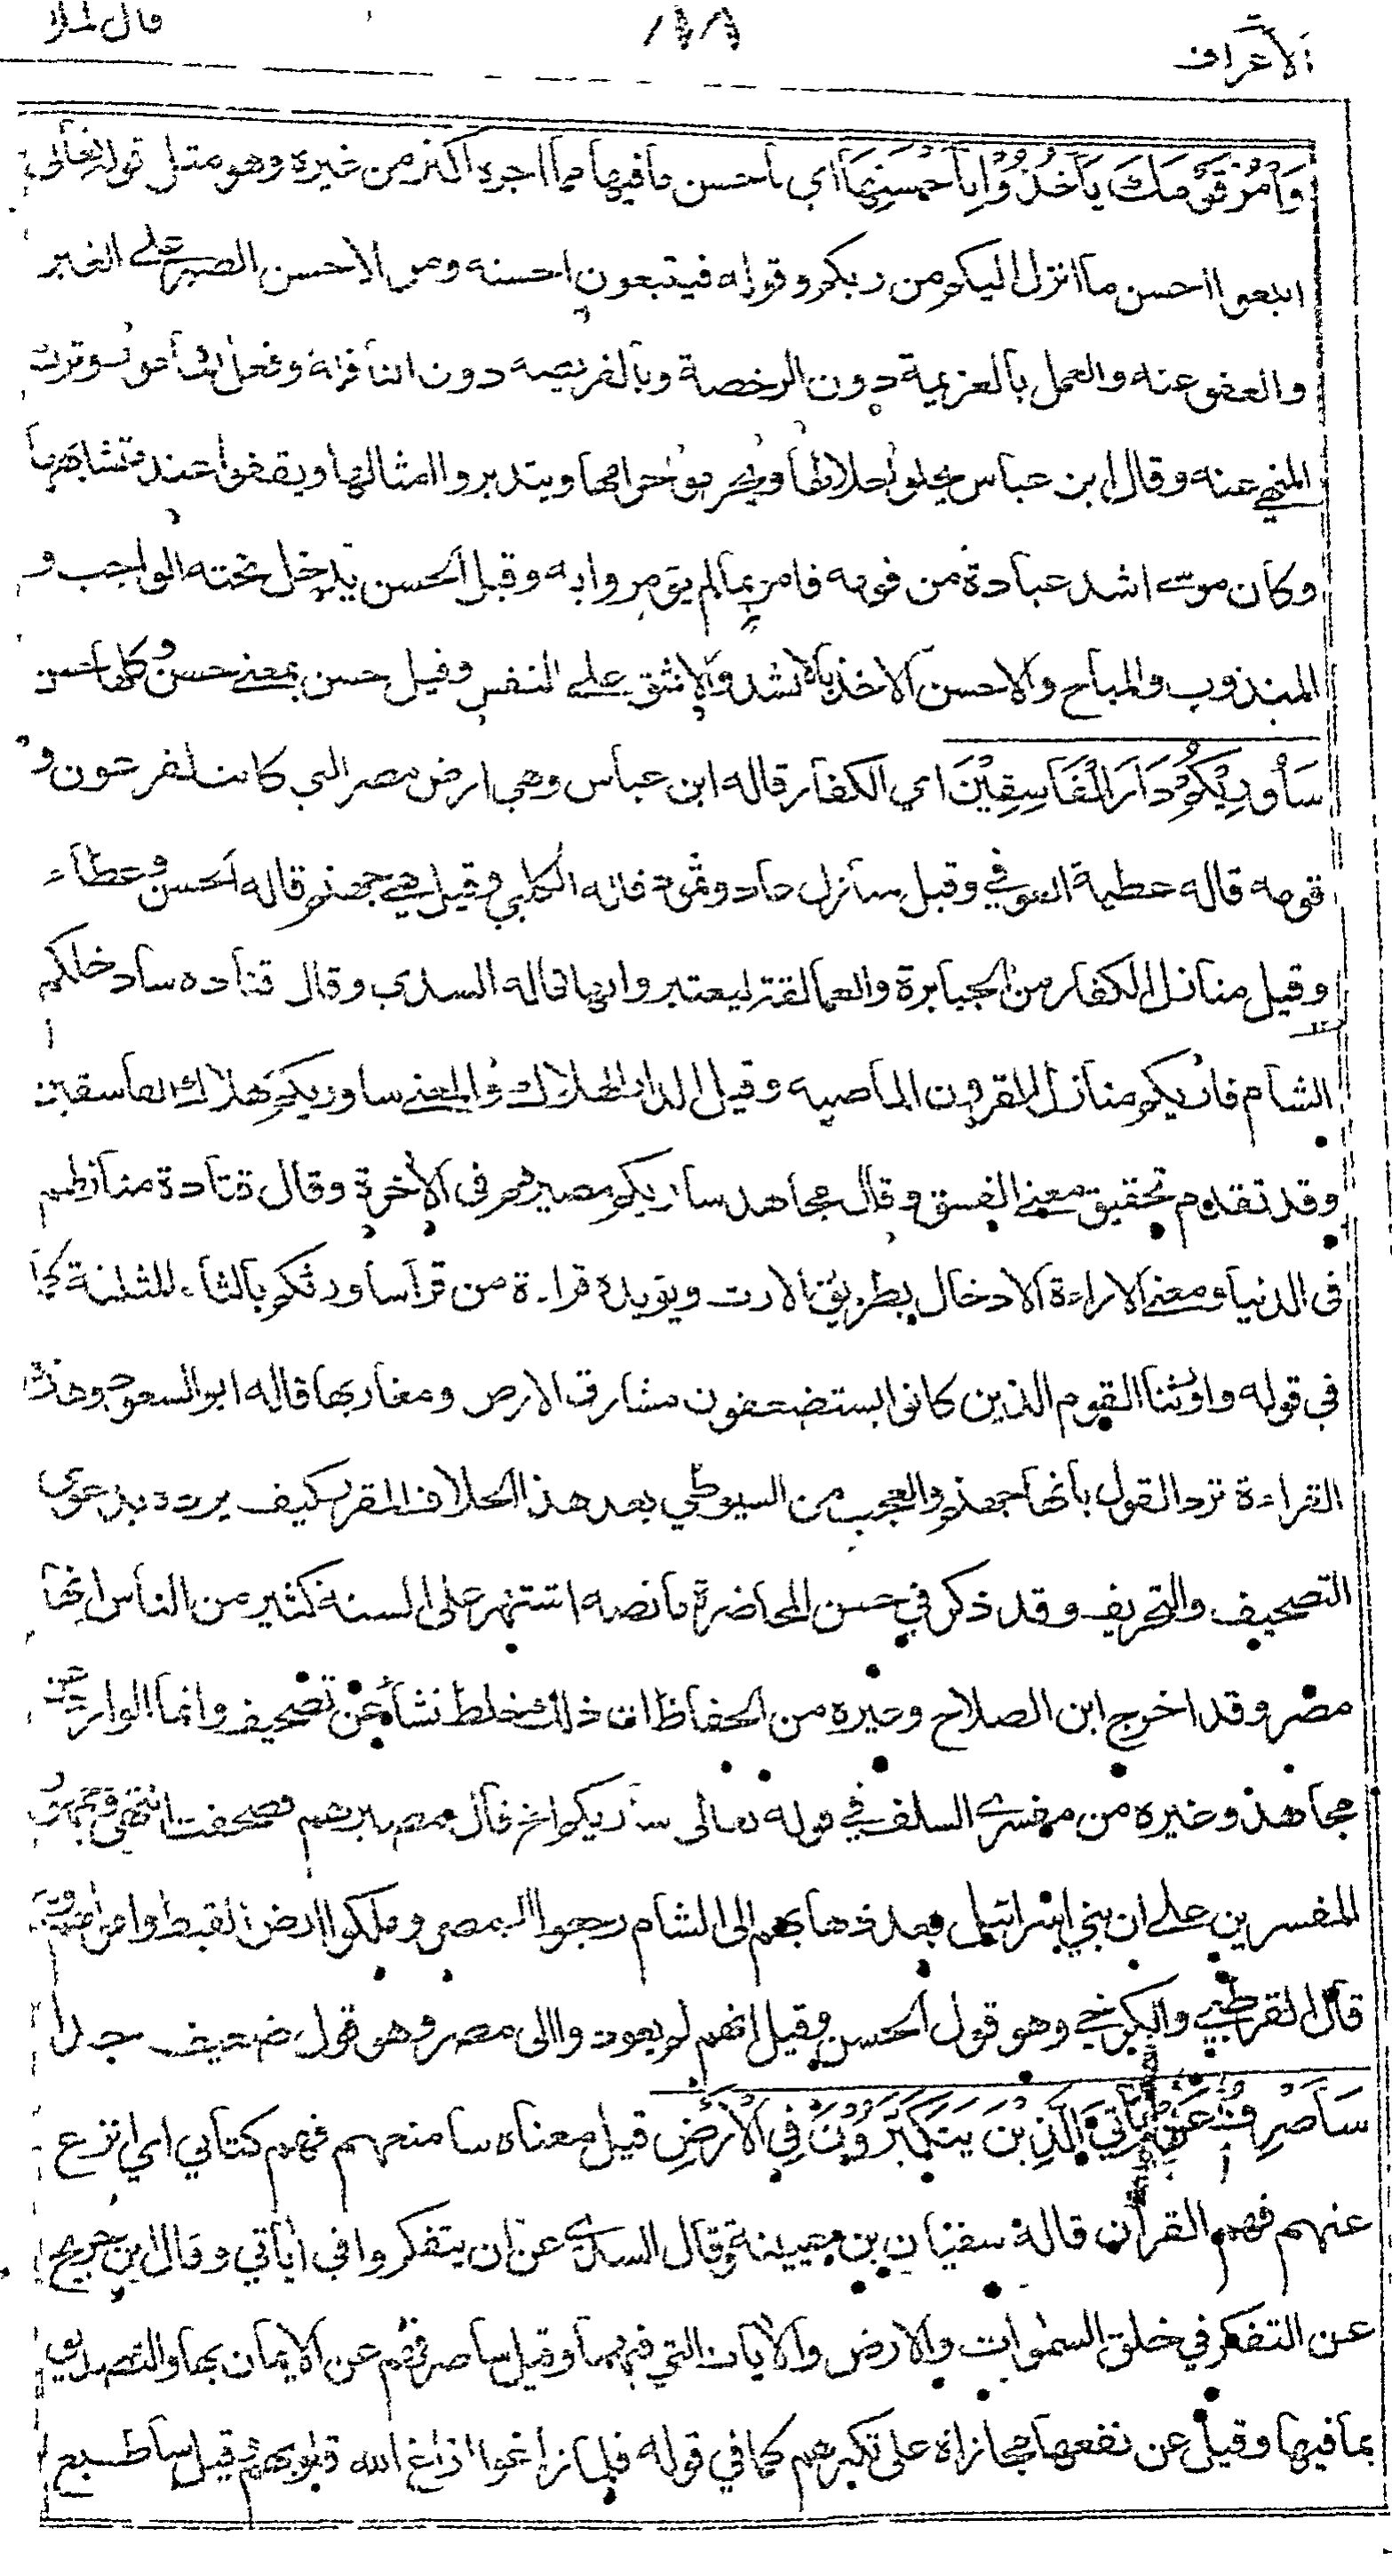 الأعراف
١٨٨
قال الملا
وَأْمُرْ قَوْمَكَ يَأْخُذُوْا بِأَحْسَنِهَا أي بأحسن ما فيها مما اجره اكثر من غيره وهو مثل قوله تعالى
اتبعوا احسن ما انزل اليكم من ربكم وقوله فيتبعون احسنه ومن الاحسن الصبر على الغير
والعفو عنه والعمل بالعزيمة دون الرخصة وبالفريضه دون النافلة وفعل المأمور وترك
المنهي عنه وقال ابن عباس يحلوا حلالها ويحرموا حرامها ويتدبروا امثالها ويقفوا عند متشابهها
وكان موسى اشد عبادة من قومه فامر بما لم يؤمروا به وقيل الحسن يدخل تحته الواجب و
المندوب والمباح والاحسن الاخذ بالاشد والاشق على النفس وقيل حسن بمعنى حسن وكلها حسن
سَأُورِيْكُمْ دَارَ الْفَاسِقِيْنَ اي الكفار قاله ابن عباس وهي ارض مصر التي كانت لفرعون و
قومه قاله عطية العوفي وقيل منازل عاد وثمود قاله الكلبي وقيل هي جهنم قاله الحسن وعطاء
وقيل منازل الكفار من الجبابرة والعمالقة ليعتبروا بها قاله السدي وقال قتاده سادخلكم
الشام فاريكم منازل القرون الماضيه وقيل الدار الهلاك والمعنى ساوريكم هلاك الفاسقين
وقد تقدم تحقيق معنى الفسق وقال مجاهد ساريكم مصيرهم في الأخرة وقال قتادة منازلهم
في الدنيا ومعنى الاراءة الادخال بطريق الارث ويؤيده قراءة من قرأ ساورثكم بالثاء المثلثة كما
في قوله واورثنا القوم الذين كانوا يستضعفون مشارق الارض ومغاربها قاله ابو السعود وهذه
القراءة ترد القول بأنها جهنم والعجب من السيوطي بعد هذا الخلاف المقرر كيف يردد بدعوى
التصحيف والتحريف وقد ذكر في حسن المحاضرة ما نصه اشتهر على السنة كثير من الناس انها
مصر وقد اخرج ابن الصلاح وغيره من الحفاظ ان ذلك غلط نشأ عن تصحيف وانما الوارد عن
مجاهد وغيره من مفسري السلف في قوله تعالى سأريكم الخ قال مصيرهم فصحفت انتهى وجمهور
المفسرين على ان بني اسرائيل بعد ذهابهم الى الشام رجعوا الى مصر وملكوا ارض القبط واموالهم
قال القرطبي والكرخي وهو قول الحسن وقيل انهم لم يعودوا الى مصر وهو قول ضعيف جدا
سَأَصْرِفُ عَنْ آيَاتِيَ الَّذِيْنَ يَتَكَبَّرُوْنَ فِي الْأَرْضِ قيل معناه سامنعهم فهم كتابي اي انزع
عنهم فهم القرآن قاله سفيان بن عيينة وقال السدي عن ان يتفكروا في أياتي وقال ابن جريج
عن التفكر في خلق السموات والارض والأيات التي فيهما وقيل ساصرفهم عن الايمان بها والتصديق
بما فيها وقيل عن نفعها مجازاة على تكبرهم كما في قوله فلما زاغوا ازاغ الله قلوبهم وقيل سأطبع